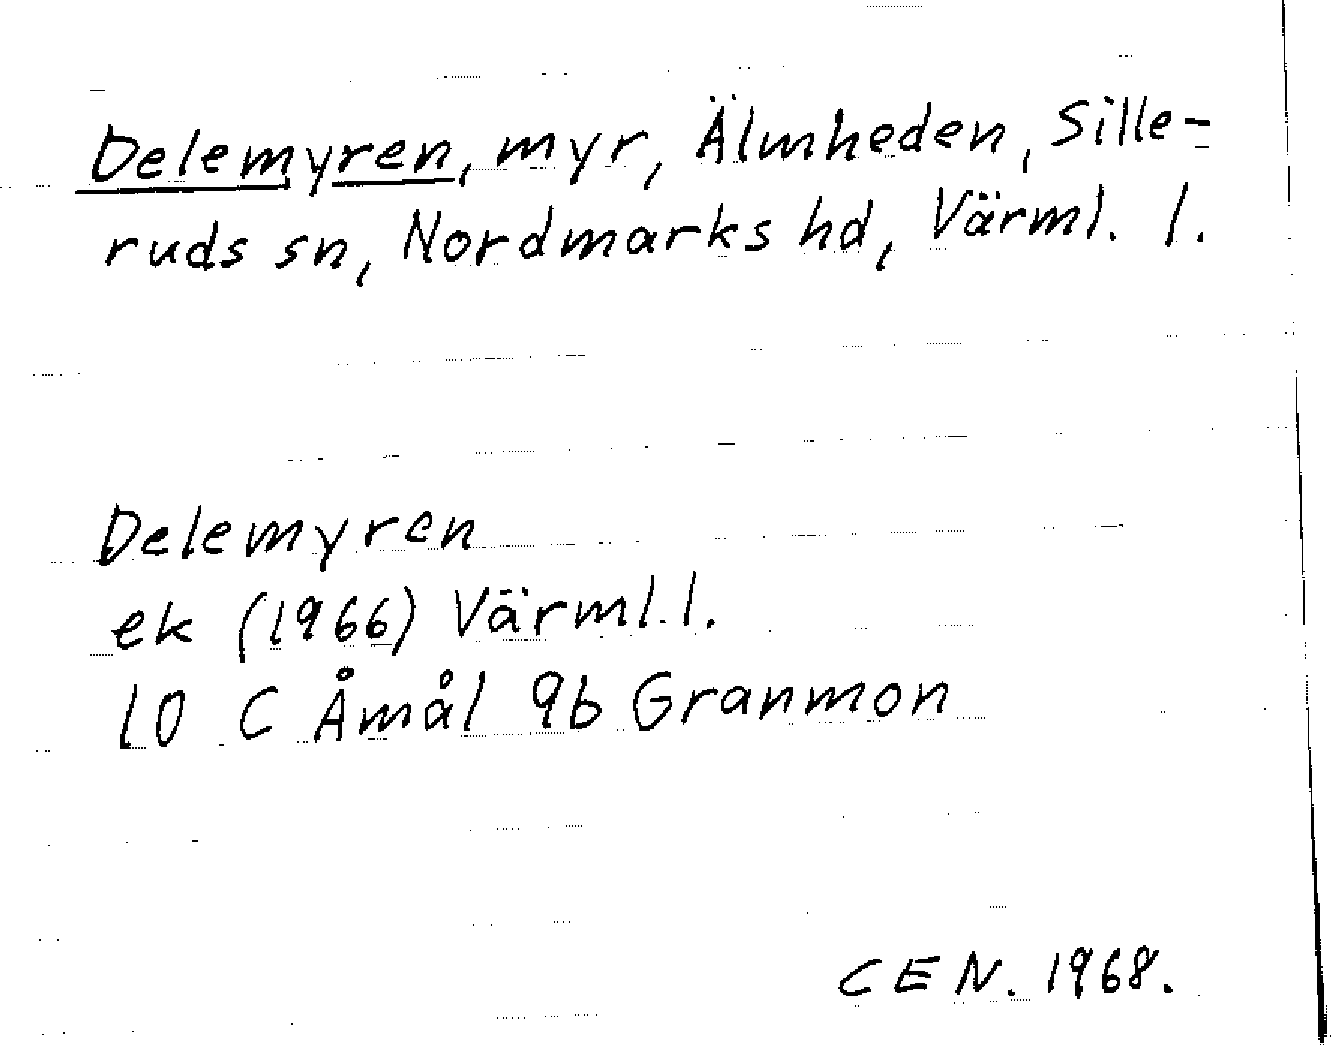 Delemyren, myr, Älmheden, Sille-
ruds sn, Nordmarks hd, Värml. l.
Delemyren
ek (1966) Värml. l.
10 C Åmål 9b Granmon
CEN. 1968.